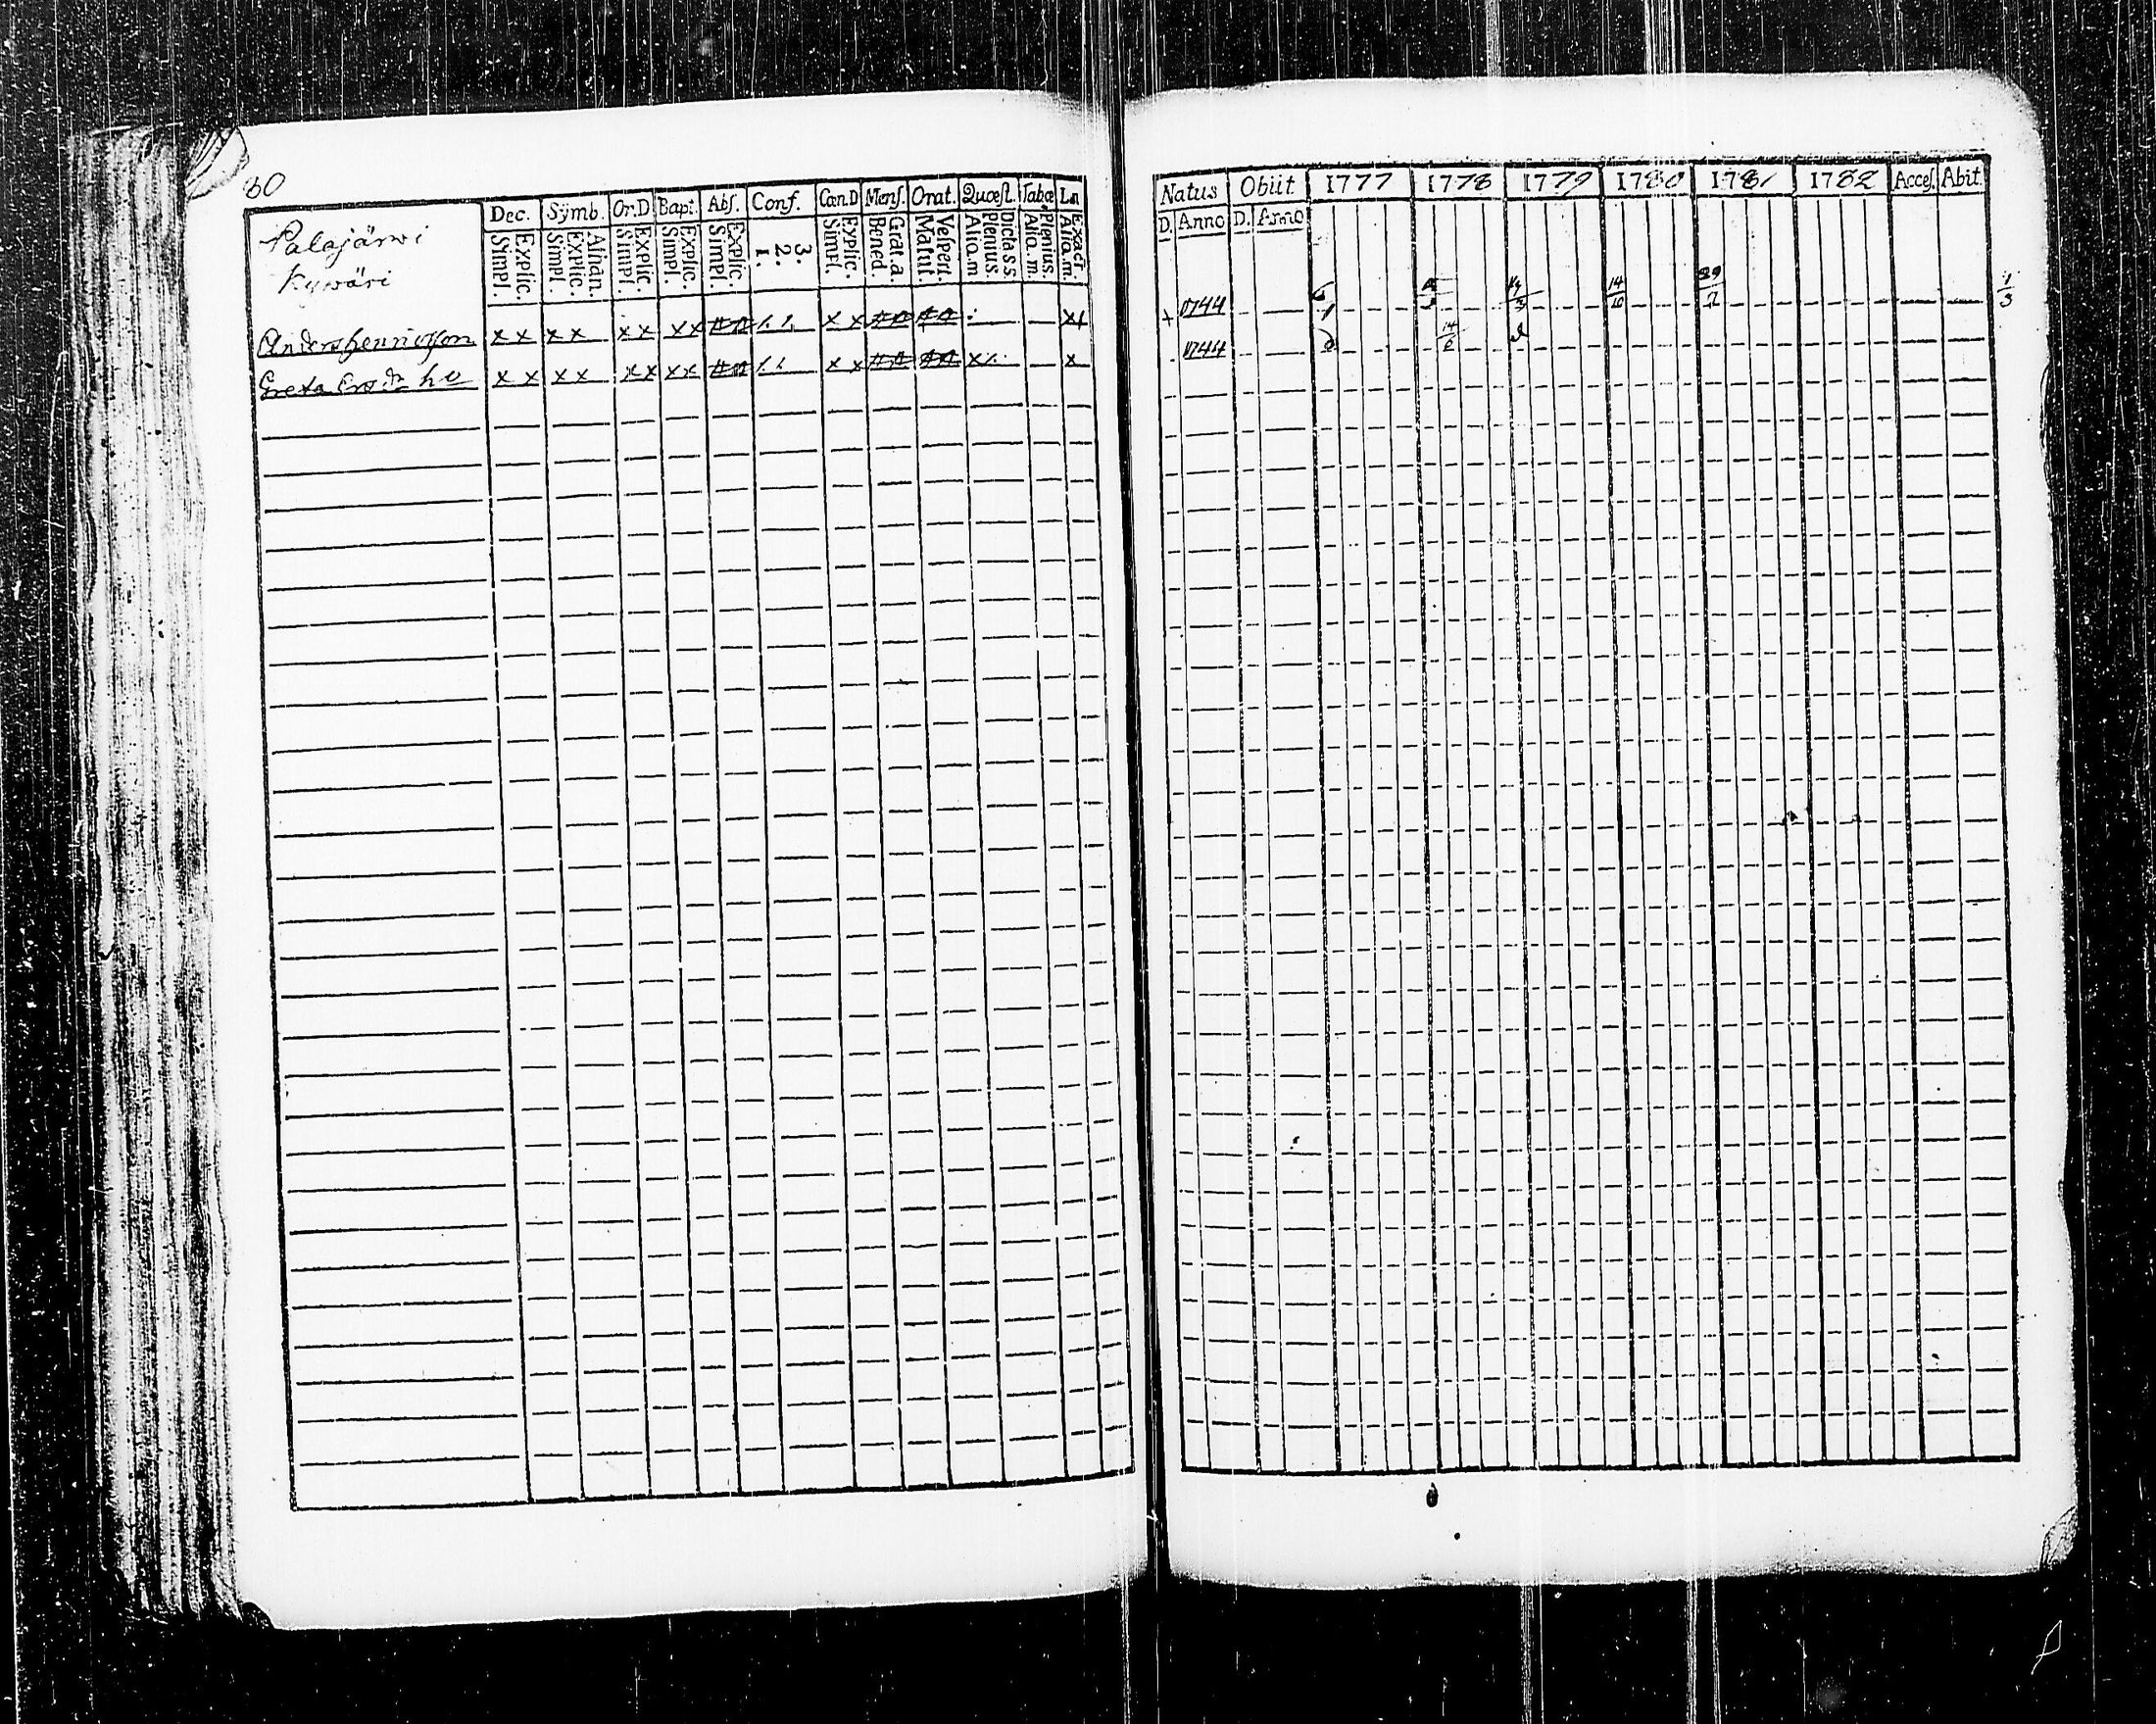 60
Palajärwi
Kywäri
Dec. Sÿmb. Or.D Bapt. Abſ. Conf. Cœn.D Menſ. Orat. Quœſt. Tabœ Ln
Simpl. Explic. Simpl. Explic. Athan. Simpl. Explic. Simpl. Explic. Simpl. Explic. 1. 2. 3. Simpl. Explic. Bened. Grat.a. Matut. Veſpert. Alio.m Plenius. Dicta s s. Alia.m. Plenius. Alia.m. Exact.
Anders Henricsson x x x x x x x x x x x x
Greta Ers dr h u x x x x x x x x x x x x
Natus Obiit 1777 1778 1779 1780 1781 1782 Acceſ. Abit.
D. Anno D. Anno
1744 14/10 29/2 1/3
1744 14/6